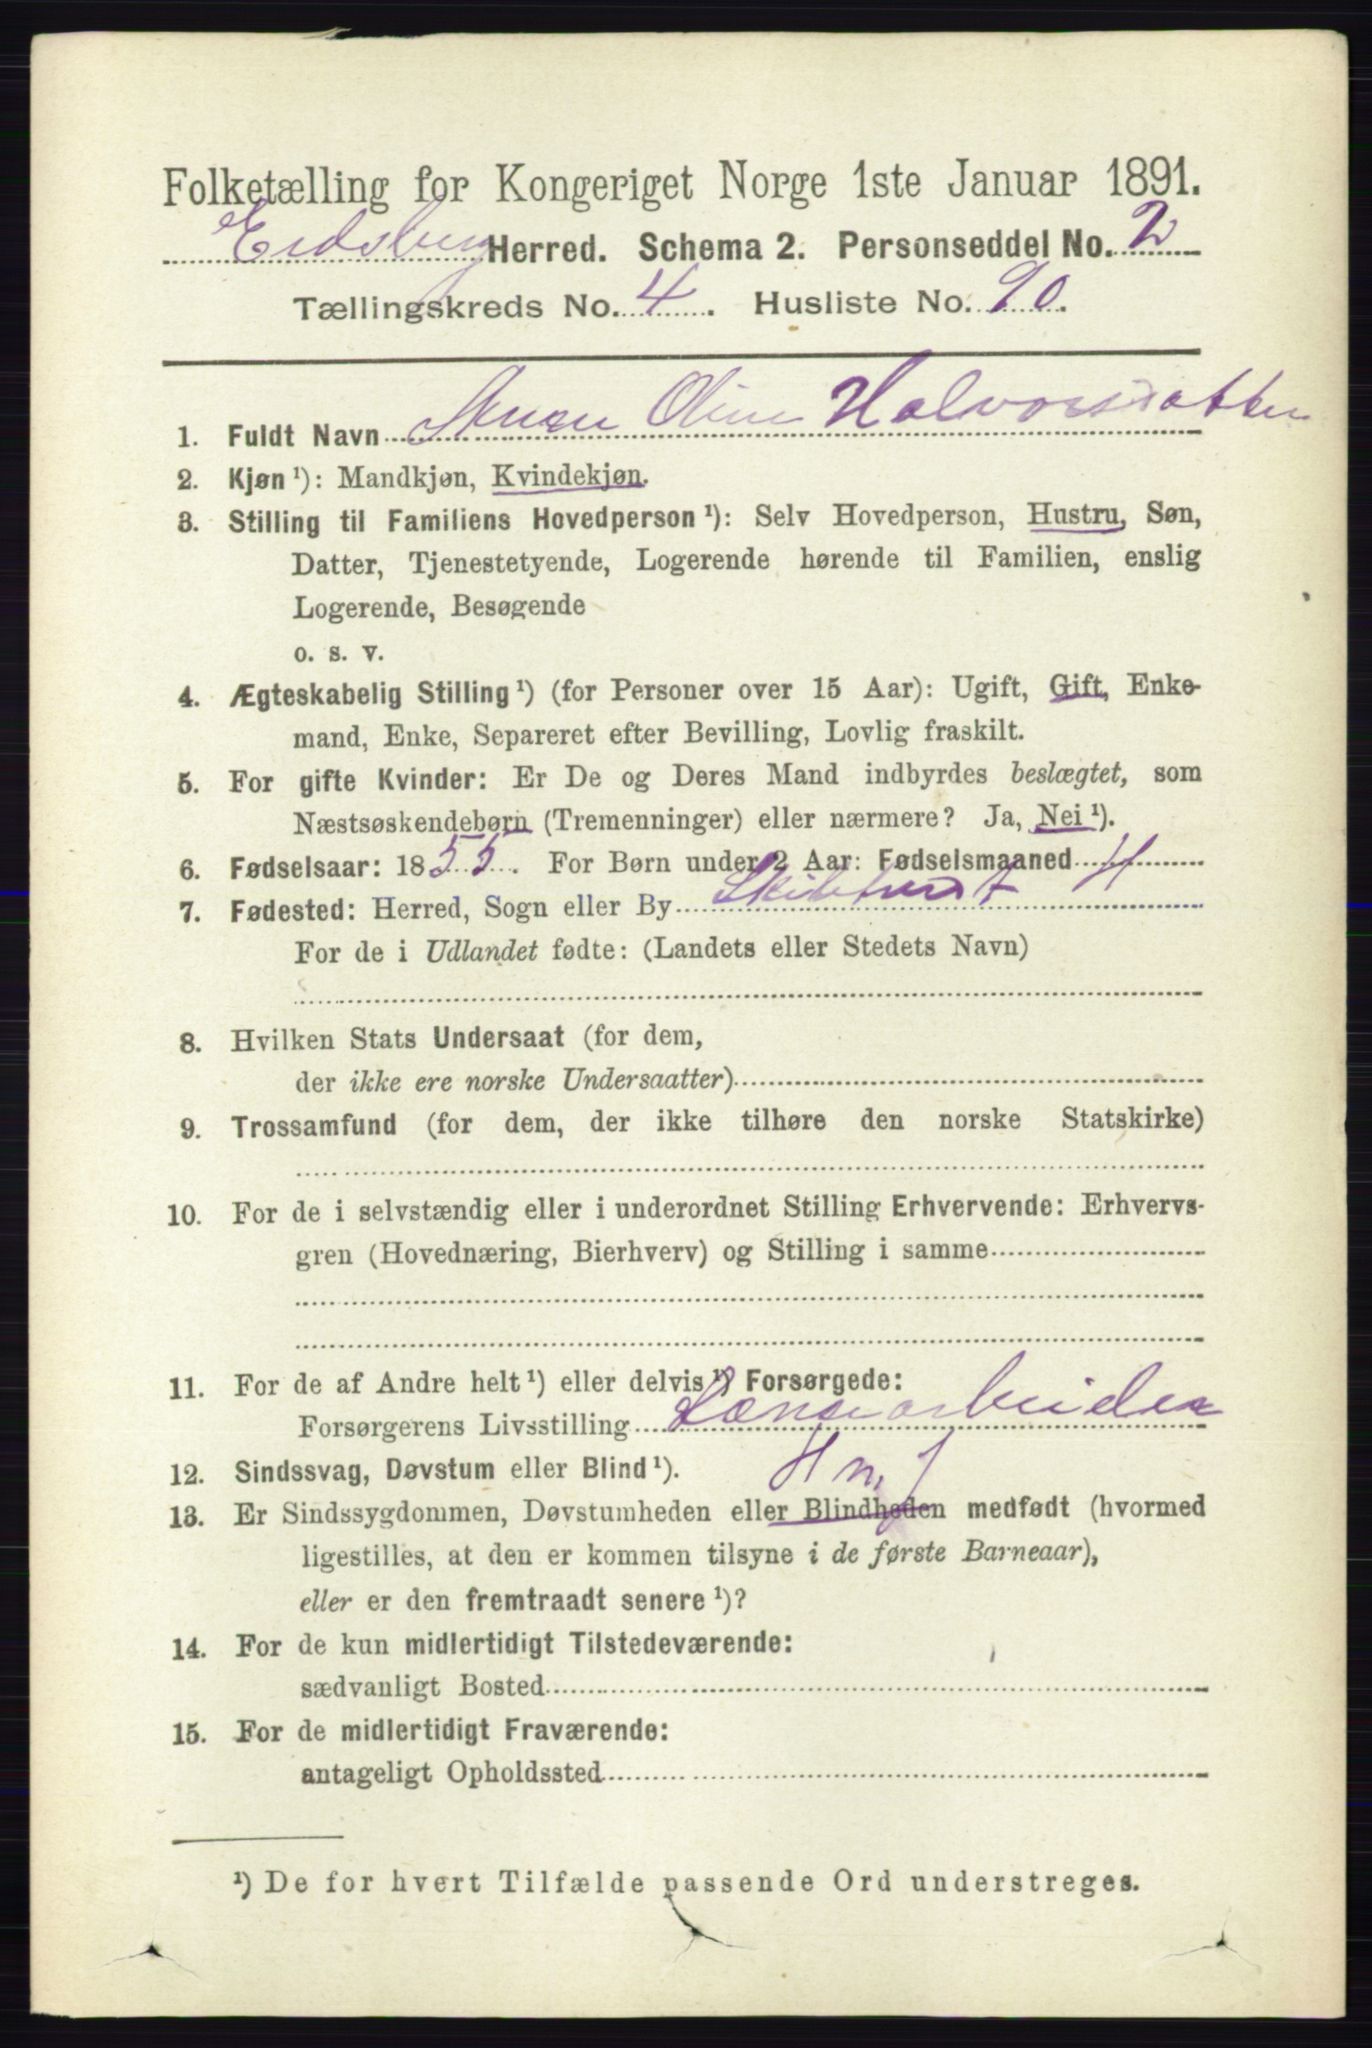 Folketælling for Kongeriget Norge 1ste Januar 1891.
Eidsberg Herred. Schema 2. Personseddel No. 2
Tællingskreds No. 4. Husliste No. 90.
1. Fuldt Navn Anne Oline Halvorsdatter
2. Kjøn ¹): Mandkjøn, Kvindekjøn.
3. Stilling til Familiens Hovedperson ¹): Selv Hovedperson, Hustru, Søn,
Datter, Tjenestetyende, Logerende hørende til Familien, enslig
Logerende, Besøgende
o. s. v.
4. Ægteskabelig Stilling ¹) (for Personer over 15 Aar): Ugift, Gift, Enke-
mand, Enke, Separeret efter Bevilling, Lovlig fraskilt.
5. For gifte Kvinder: Er De og Deres Mand indbyrdes beslægtet, som
Næstsøskendebørn (Tremenninger) eller nærmere? Ja, Nei ¹).
6. Fødselsaar: 1855. For Børn under 2 Aar: Fødselsmaaned
7. Fødested: Herred, Sogn eller By Skibtvedt H
For de i Udlandet fødte: (Landets eller Stedets Navn)
8. Hvilken Stats Undersaat (for dem,
der ikke ere norske Undersaatter)
9. Trossamfund (for dem, der ikke tilhøre den norske Statskirke)
10. For de i selvstændig eller i underordnet Stilling Erhvervende: Erhvervs-
gren (Hovednæring, Bierhverv) og Stilling i samme
11. For de af Andre helt ¹) eller delvis ¹) Forsørgede:
Forsørgerens Livsstilling Lænsearbeider
12. Sindssvag, Døvstum eller Blind ¹).
13. Er Sindssygdommen, Døvstumheden eller Blindheden medfødt (hvormed
ligestilles, at den er kommen tilsyne i de første Barneaar),
eller er den fremtraadt senere ¹)?
14. For de kun midlertidigt Tilstedeværende:
sædvanligt Bosted
15. For de midlertidigt Fraværende:
antageligt Opholdssted
¹) De for hvert Tilfælde passende Ord understreges.